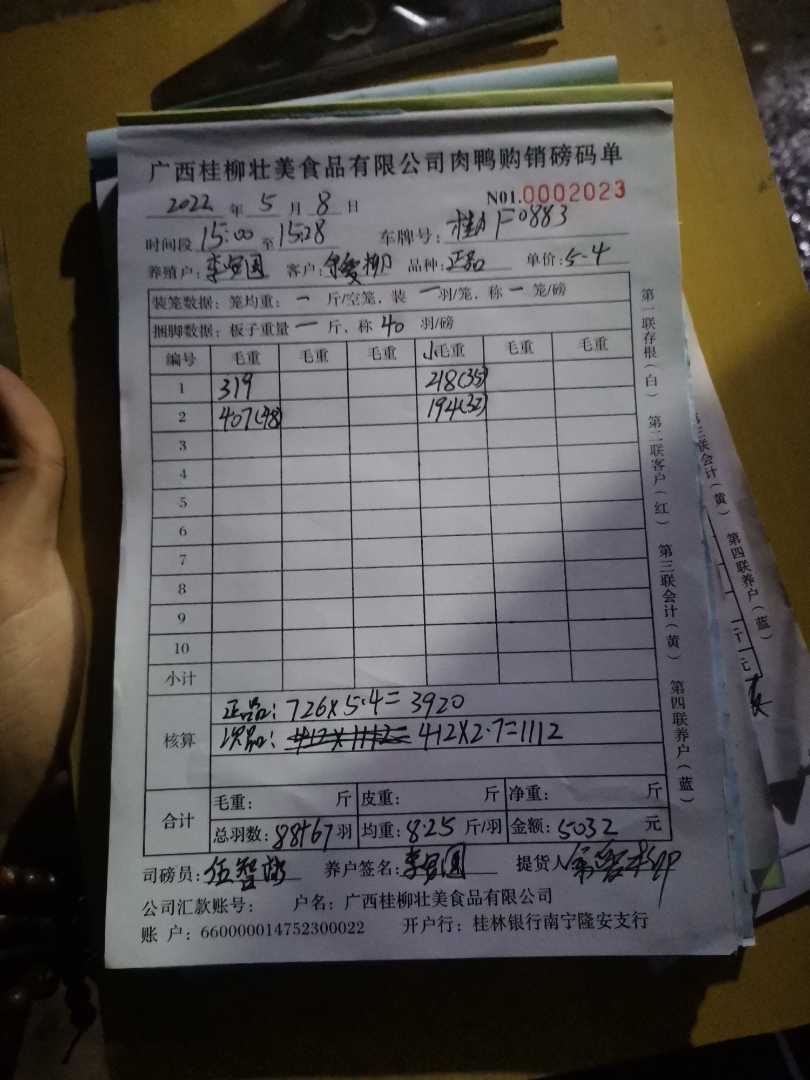 广西桂柳壮美食品有限公司肉鸭购销磅码单
NO1.0002023
2022 年 5 月 8 日
时间段 15:00 至 15:28 车牌号: 桂AF0883
养殖户: 李 国 客户: 柳 品种: 正品 单价: 5.4
装笼数据: 笼均重: 一 斤/空笼, 装 一 羽/笼, 称 一 笼/磅
捆脚数据: 板子重量 一 斤, 称 40 羽/磅
编号 毛重 毛重 毛重 小毛重 毛重 毛重
1 319 218(35)
2 407(48) 194(32)
3
4
5
6
7
8
9
10
小计
核算
正品: 726×5.4=3920
次品: 412×2.7=1112
合计
毛重: 斤 皮重: 斤 净重: 斤
总羽数: 88+67 羽 均重: 8.25 斤/羽 金额: 5032 元
司磅员: 伍智 养户签名: 李 国 提货人
公司汇款账号: 户名: 广西桂柳壮美食品有限公司
账 户: 660000014752300022 开户行: 桂林银行南宁隆安支行
第一联存根(白) 第二联客户(红) 第三联会计(黄) 第四联养户(蓝)
三联会计(黄) 第四联养户(蓝)
斤
元